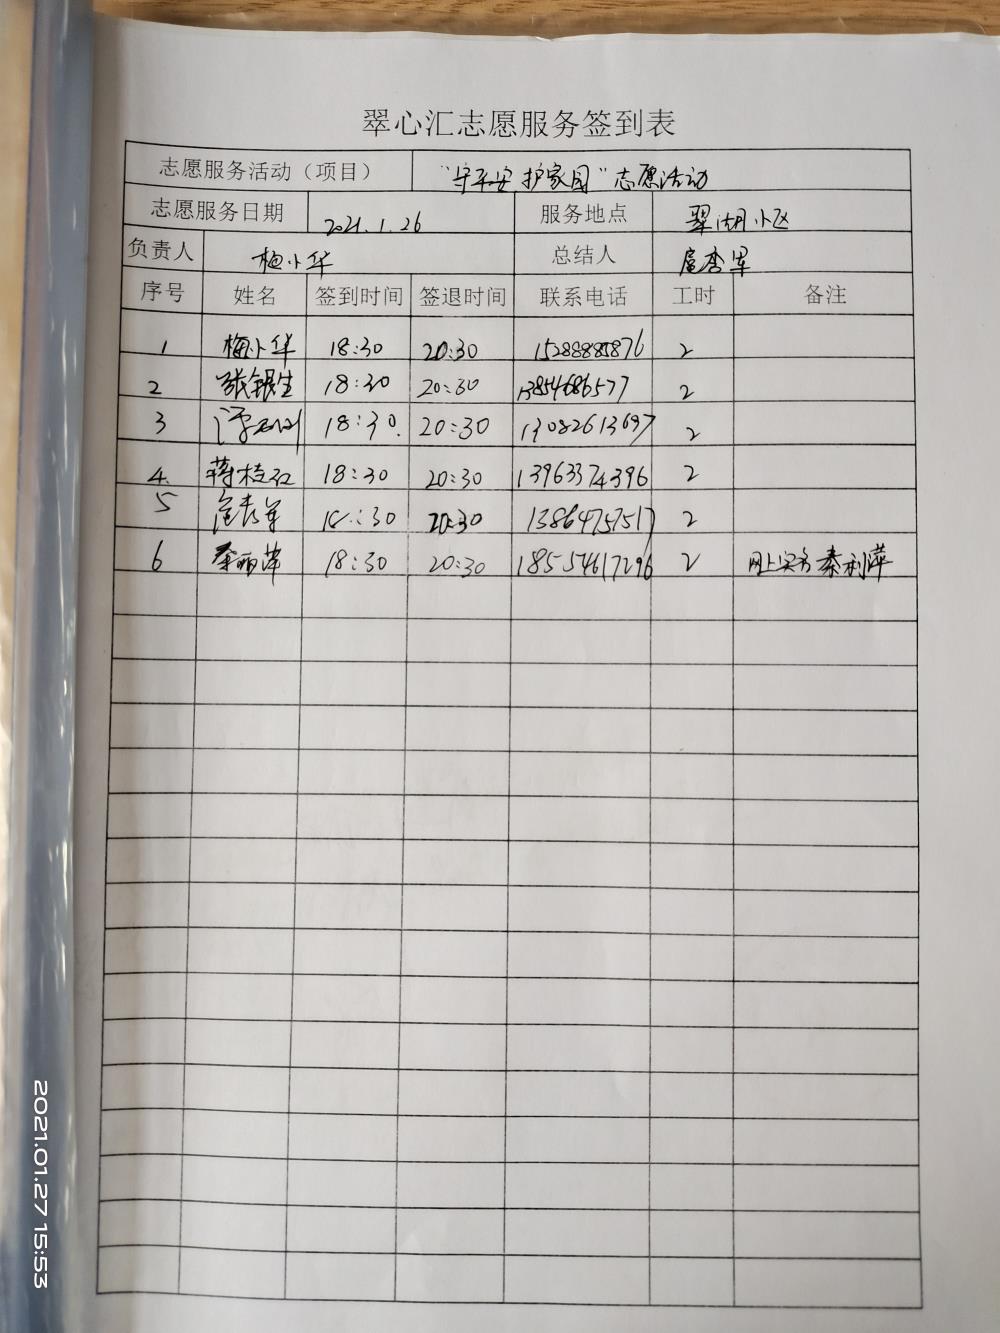 翠心汇志愿服务签到表
志愿服务活动（项目） “守平安 护家园”志愿活动
志愿服务日期 2021.1.26 服务地点 翠湖小区
负责人 梅小华 总结人
序号 姓名 签到时间 签退时间 联系电话 工时 备注
1 梅小华 18:30 20:30 2
2 张银生 18:30 20:30 13854686577 2
3 18:30. 20:30 13082613697 2
4. 蒋桂红 18:30 20:30 13963374396 2
5 18:30 20:30 13864757517 2
6 秦丽萍 18:30 20:30 18554617296 2 网上实名 秦利萍
2021.01.27 15:53